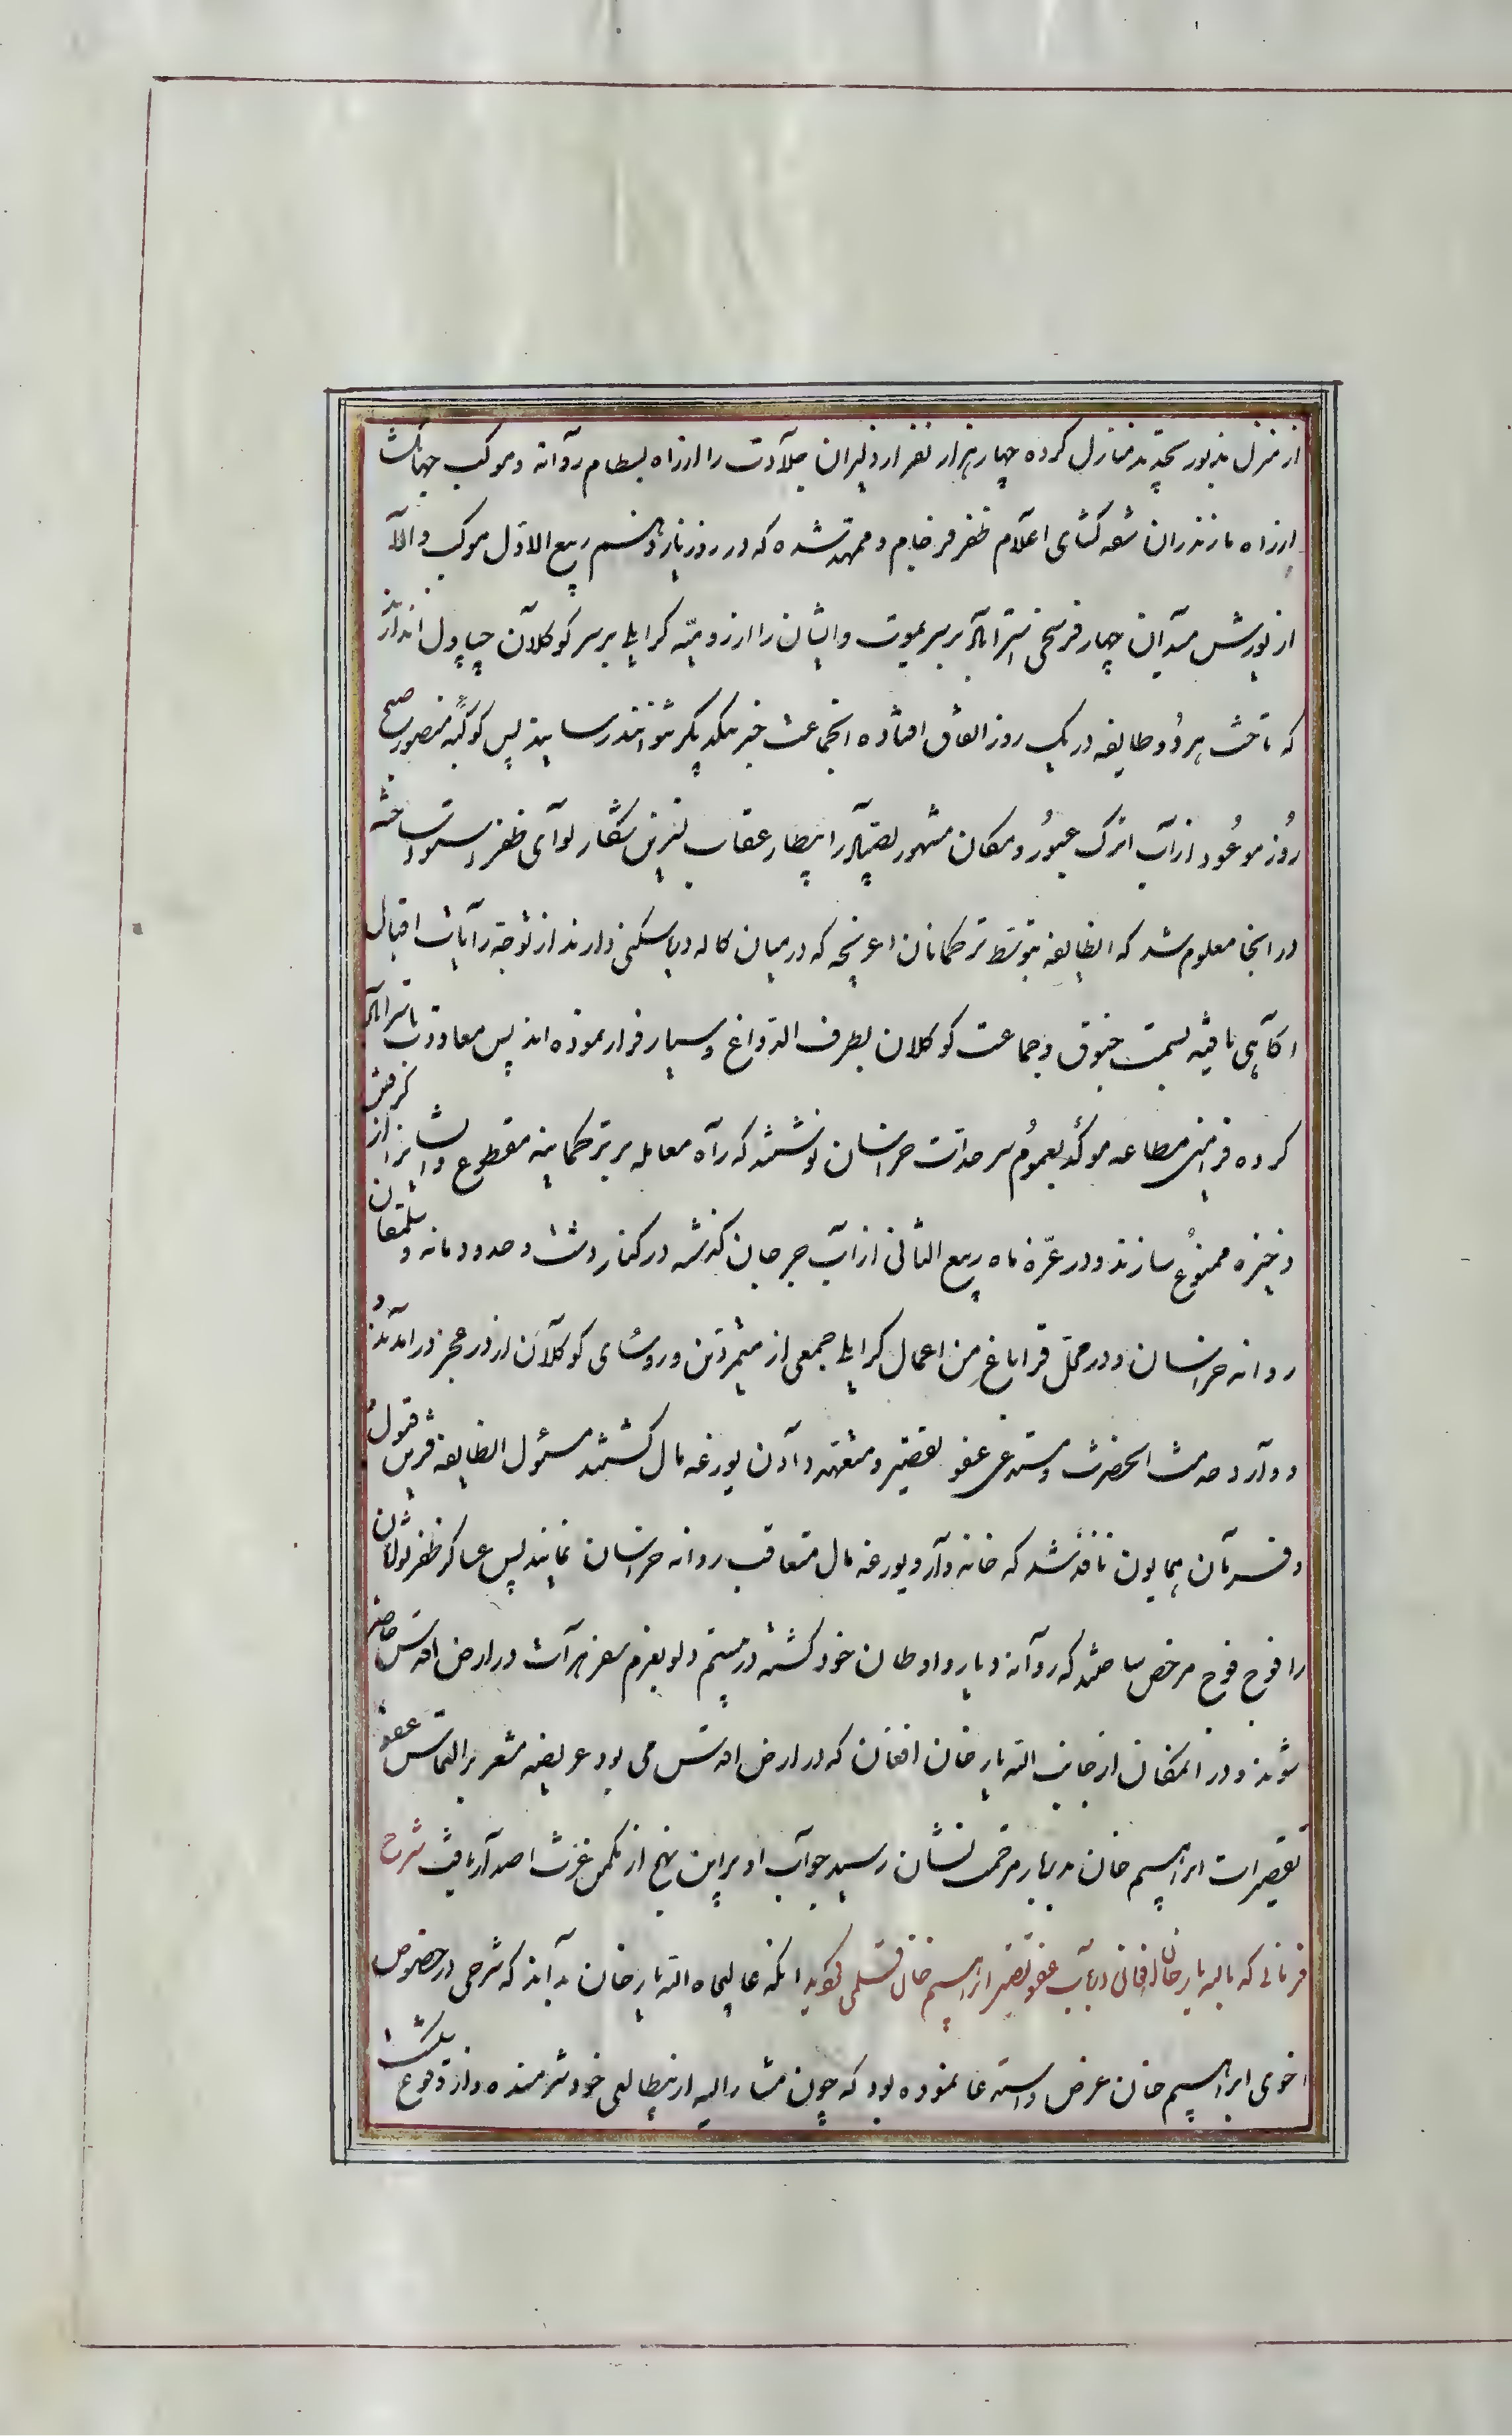 از منزل مذبور تجدید منازل کرده چهار هزار نفر از دلیران جلادت را از راه بسطام روانه و موکب جهانگشا
از راه مازندران شقه گشای اعلام ظفر فرجام و ممهد شده که در روز یازدهم ربیع الاول موکب والا
از یورش میدان چهار فرسخی استراباد بر سر یموت و ایشان را از رویه کرایلی بر سر کوکلان چپاول اندازند
که تاخت هر دو طایفه در یک روز اتفاق افتاده انجماعت خبر بیکدیکر نتوانند رسانید پس کوکبه منصور صبح
روز موعود از آب اترک عبور و مکان مشهور را بیطار عقاب لوای ظفر ساخته
در انجا معلوم شد که انطایفه بتوسط ترکمانان اغرنچه که در میان کاله و یا سکنی دارند از توجه رایات اقبال
اکاهی یافته بسمت خیوق و جماعت کوکلان بطرف الدواغ و سیار فرار نموده اند پس معاودت باستراباد
کرده فرامین مطاعه موکد بعموم سرحدات خراسان نوشتند که راه معامله بر ترکمانیه مقطوع و ایشانرا از گرفتن
ذخیره ممنوع سازند و در غره ماه ربیع الثانی از آب جرجان کذشته در کنار دشت و حدود مانه و سلمقان
روانه خراسان و در محل قراباغ من اعمال کرایلی جمعی از متمردین و روسای کوکلان از در عجز درآمدند و
دوارد خدمت انحضرت و مستدعی عفو تقصیر و متعهد دادن یورغه مال گشتند مسئول انطایفه قرین قبول
و فرمان همایون نافذ شد که خانه وار و یورغه مال متعاقب روانه خراسان نمایند پس عساکر ظفر توأمان
را فوج فوج مرخص ساختند که روانه دیار و اوطان خود گشته در بیستم دلو بعزم سفر هرات در ارض اقدس حاضر
شوند و در انمکان از جانب الله یار خان افغان که در ارض اقدس می بود عریضه مشعر بر التماس عفو
تقصیرات ابراهیم خان بدربار مرحمت نشان رسید جواب او بر این نهج از مکمن عزت اصدار یافت شرح
فرمانی که باله یار خان افغانی در باب عفو تقصیر ابراهیم خان قلمی گردید انکه عالیجاه الله یار خان بداند که شرحی در خصوص
اخوی ابراهیم خان عرض و استدعا نموده بود که چون مشار الیه از بیطالعی خود شرمنده و از وقوع